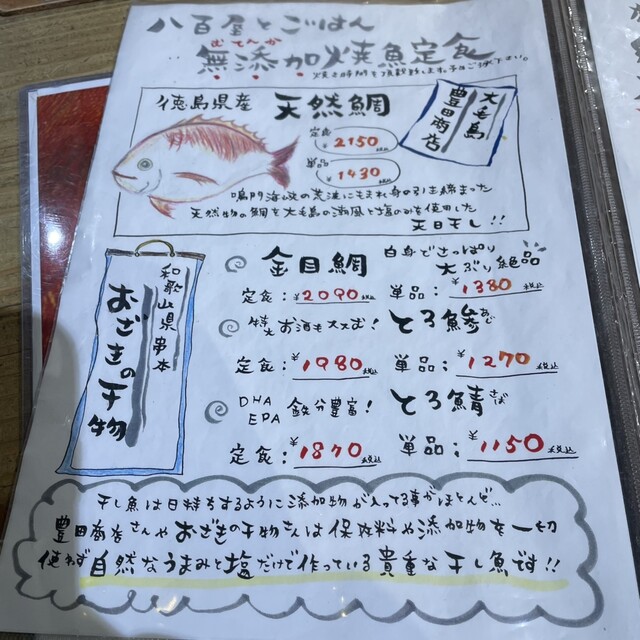 八百屋とごはん
むてんか
無添加焼魚定食
焼き時間を頂戴致します。予めご了承下さい。
徳島県産 天然鯛
大毛島
豊田商店
定食 ¥2150税込
単品 ¥1430税込
鳴門海峡の荒波にもまれ身の引き締まった
天然物の鯛を大毛島の潮風と塩のみを使用した
天日干し!!
和歌山県串本
おざきの干物
金目鯛 白身でさっぱり
大ぶり絶品
定食:¥2090税込 単品:¥1380税込
特大お酒もススむ! とろ鯵あじ
定食:¥1980税込 単品:¥1270税込
DHA
EPA 鉄分豊富! とろ鯖さば
定食:¥1870税込 単品:¥1150税込
干し魚は日持ちするように添加物が入ってる事がほとんど...
豊田商店さんやおざきの干物さんは保存料や添加物を一切
使わず自然なうまみと塩だけで作っている貴重な干し魚です!!